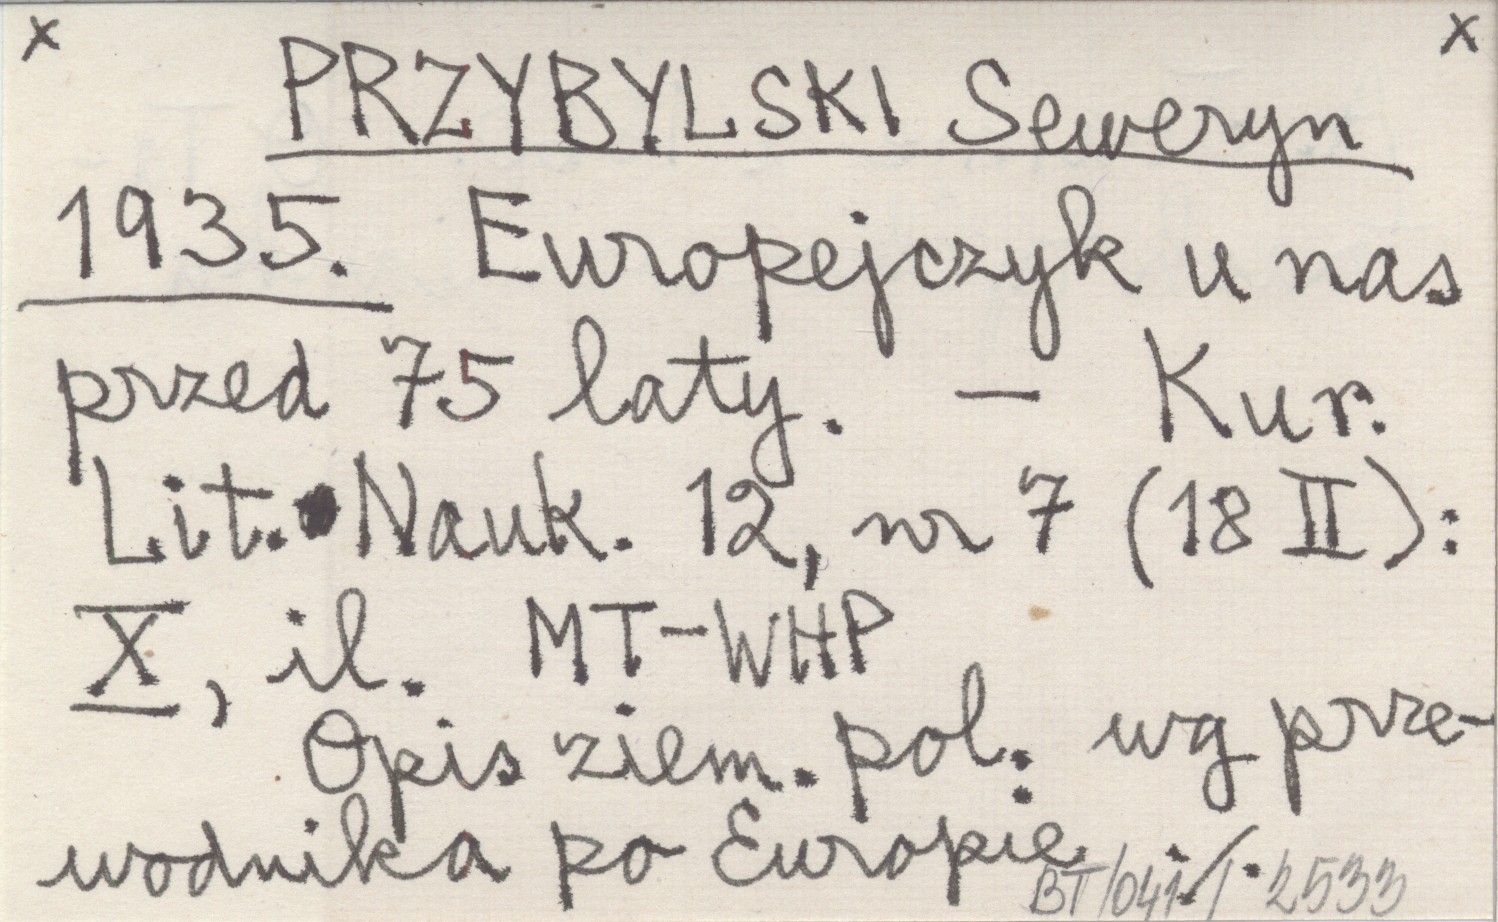 x x
PRZYBYLSKI Seweryn
1935. Europejczyk u nas
przed 75 laty. — Kur.
Lit. Nauk. 12, nr 7 (18 II):
X, il. MT-WHP
Opis ziem. pol. wg prze-
wodnika po Europie
BT/041/1 2533